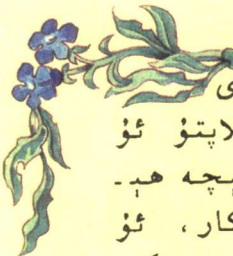 ى
لاپتۇ ئۇ
ىچە ھې-
كار، ئۇ